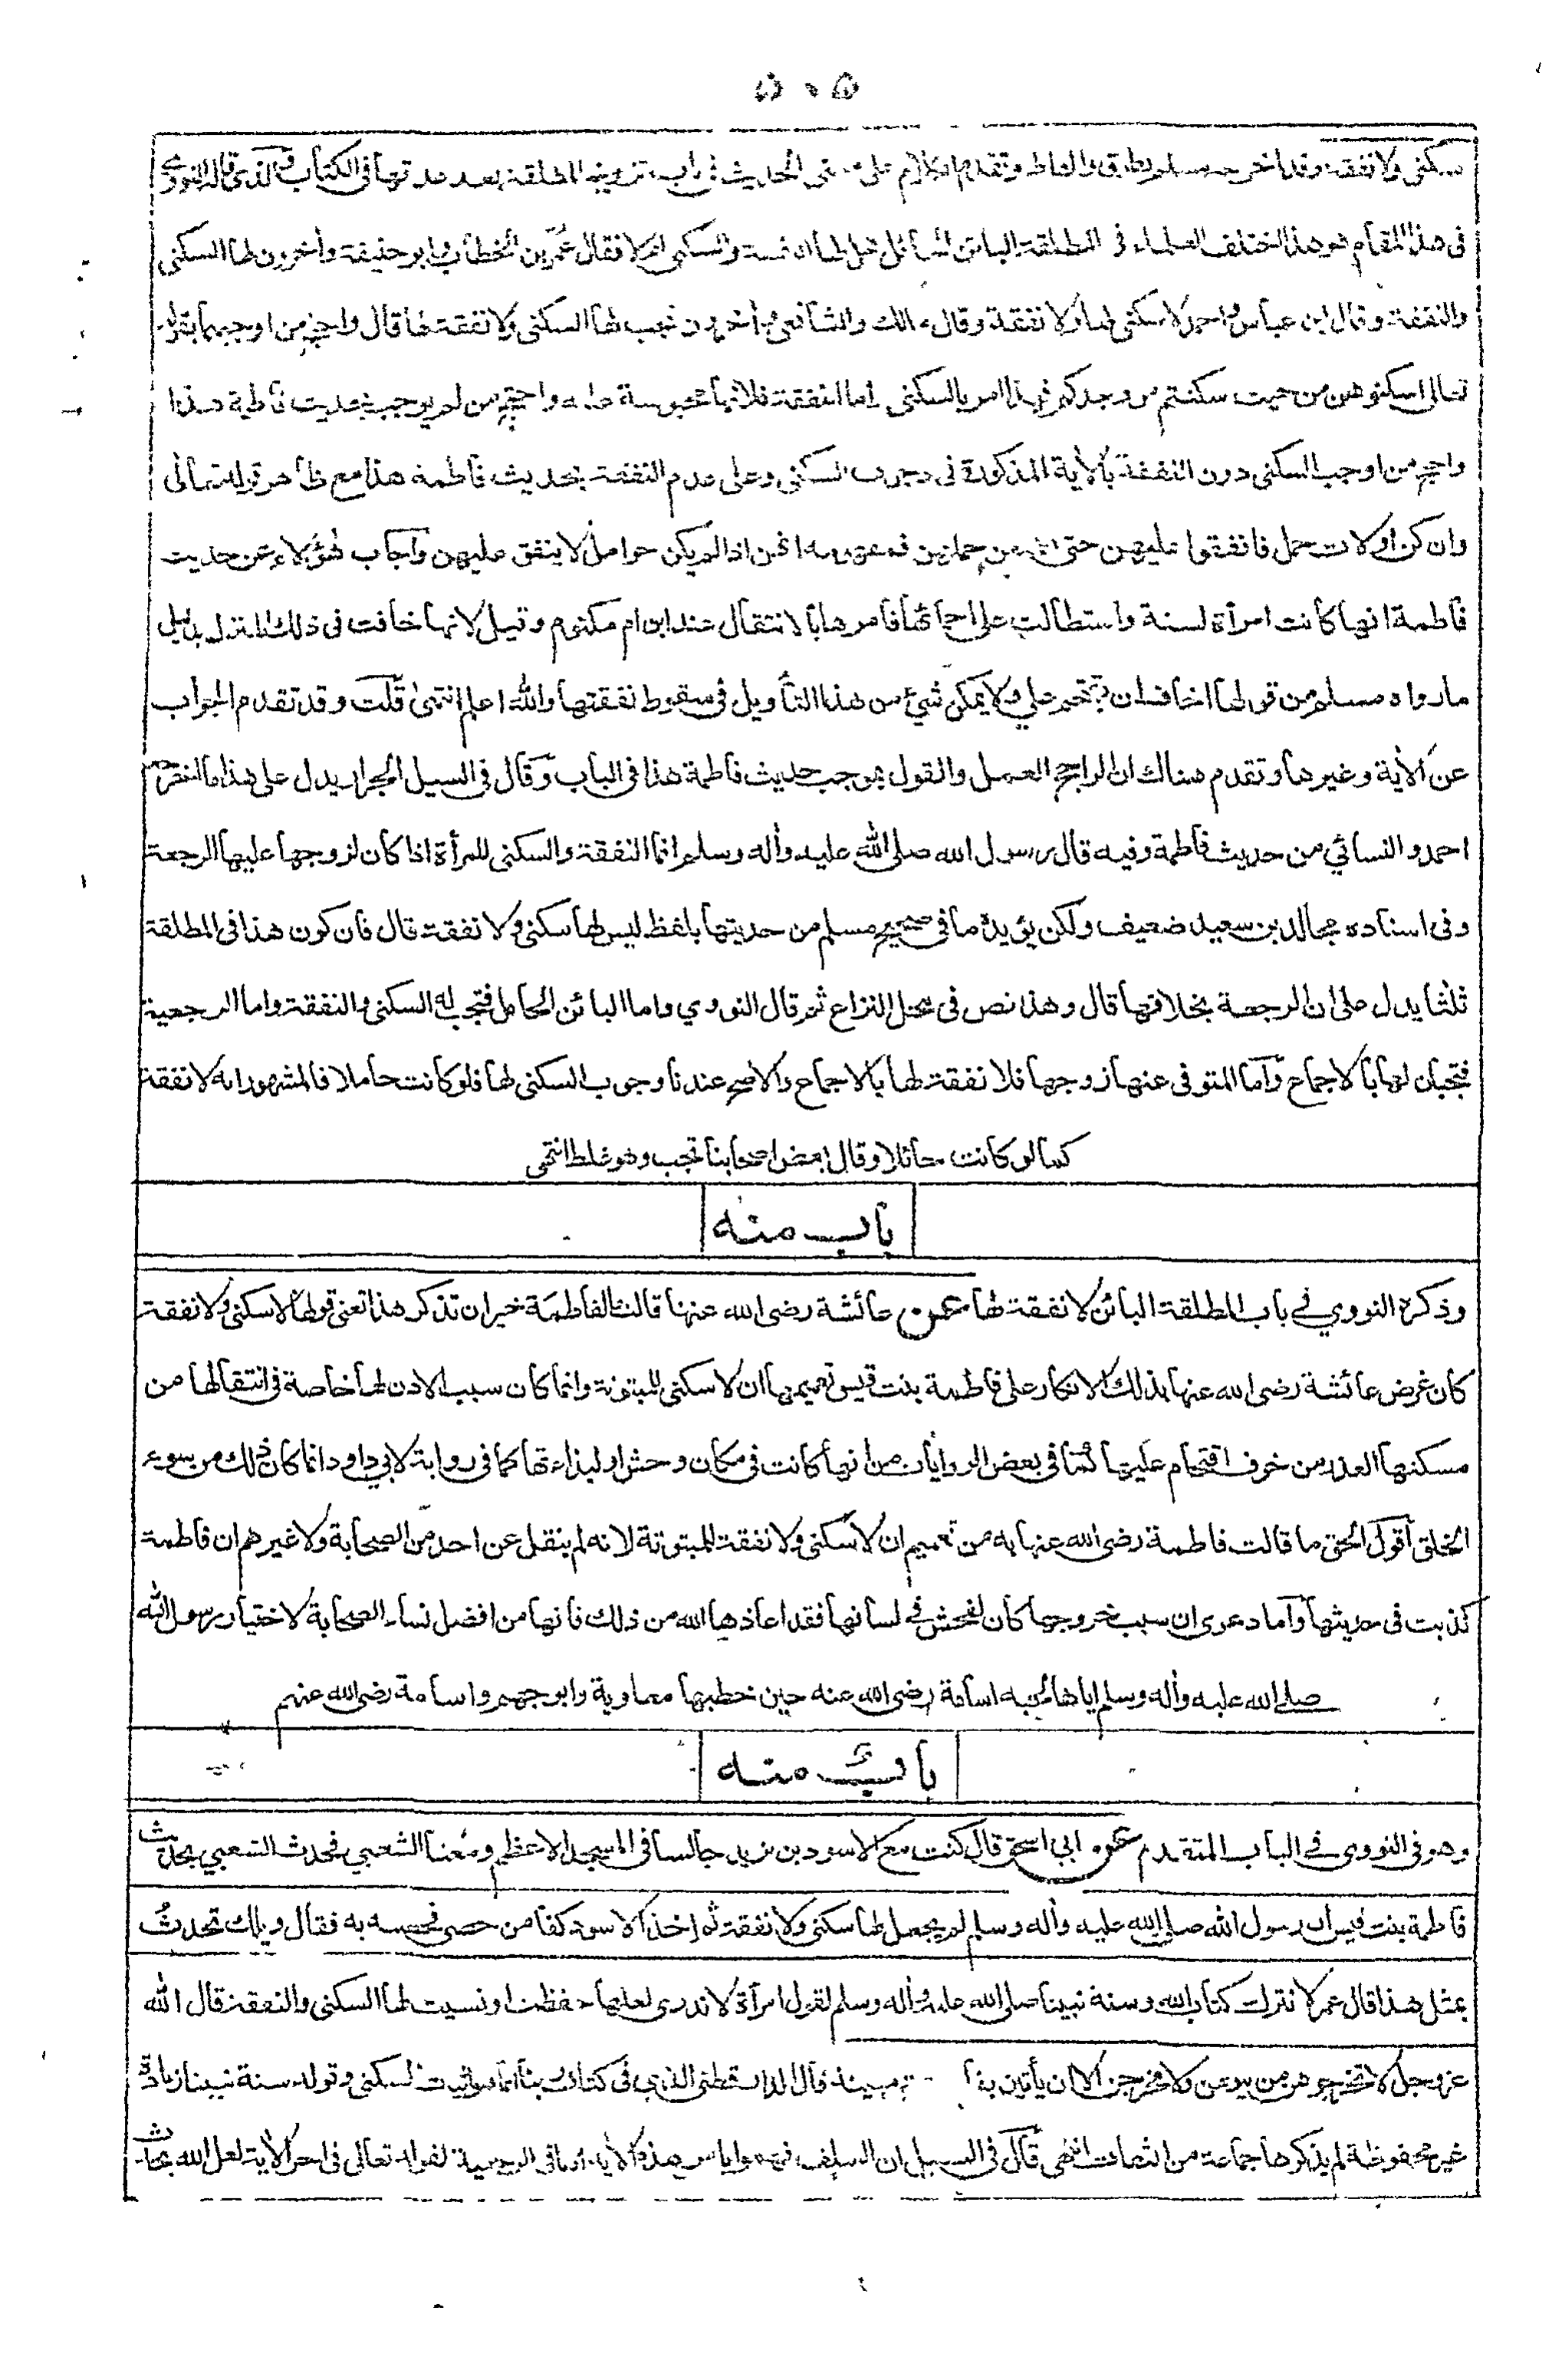 ٥٠٥
سكنى ولا نفقة وقد اخرجه مسلم بطرق والفاظ وتقدم الكلام على معنى الحديث في باب تزويج المطلقة بعد عدتها في الكتاب والذي قاله النووي
في هذا المقام هو هذا اختلف العلماء في المطلقة البائن الحائل هل لها النفقة والسكنى ام لا فقال عمر بن الخطاب وابو حنيفة واخرون لها السكنى
والنفقة وقال ابن عباس واحمد لا سكنى لها ولا نفقة وقال مالك والشافعي واخرون تجب لها السكنى ولا نفقة لها قال واحتج من اوجبهما بقوله
تعالى اسكنوهن من حيث سكنتم من وجدكم فهذا امر بالسكنى واما النفقة فلانها محبوسة عليه واحتج من لم يوجب بحديث فاطمة هذا
واحتج من اوجب السكنى دون النفقة بالأية المذكورة في وجوب السكنى وعلى عدم النفقة بحديث فاطمة هذا مع ظاهر قوله تعالى
وان كن اولات حمل فانفقوا عليهن حتى يضعن حملهن فمفهومه انهن اذا لم يكن حوامل لا ينفق عليهن وأجاب هؤلاء عن حديث
فاطمة انها كانت امرأة لسنة واستطالت على احمائها فأمرها بالانتقال عند ابن ام مكتوم وقيل لانها خافت في ذلك المنزل بدليل
ما رواه مسلم من قولها اخاف ان يقتحم علي ولا يمكن شئ من هذا التأويل في سقوط نفقتها والله اعلم انتهى قلت وقد تقدم الجواب
عن الأية وغيرها وتقدم هناك ان الراجح العمل والقول بموجب حديث فاطمة هذا في الباب وقال في السيل الجرار يدل على هذا ما اخرجه
احمد والنسائي من حديث فاطمة وفيه قال رسول الله صلى الله عليه وأله وسلم انما النفقة والسكنى للمرأة اذا كان لزوجها عليها الرجعة
وفى اسناده مجالد بن سعيد ضعيف ولكن يؤيده ما في صحيح مسلم من حديثها بلفظ ليس لها سكنى ولا نفقة قال فان كون هذا في المطلقة
ثلثا يدل على ان الرجعية بخلافها قال وهذا نص في محل النزاع ثم قال النووي واما البائن الحامل فتجب له السكنى والنفقة واما الرجعية
فتجبان لها بالاجماع وأما المتوفى عنها زوجها فلا نفقة لها بالاجماع والاصح عندنا وجوب السكنى لها فلو كانت حاملا فالمشهور انه لا نفقة
كما لو كانت حائلا وقال بعض اصحابنا تجب وهو غلط انتهى
باب منه
وذكره النووي في باب المطلقة البائن لا نفقة لها عن عائشة رضى الله عنها قالت ما لفاطمة خير ان تذكر هذا تعني قولها لا سكنى ولا نفقة
كان غرض عائشة رضى الله عنها بذلك الانكار على فاطمة بنت قيس تعميمها ان لا سكنى للمبتوتة وانما كان سبب الاذن لها خاصة في انتقالها من
مسكنها العذر من خوف اقتحام عليها كما في بعض الروايات من انها كانت في مكان وحش او لبذاءتها كما في رواية لابي داود انما كان ذلك من سوء
الخلق أقول الحق ما قالت فاطمة رضى الله عنها به من تعميم ان لا سكنى ولا نفقة للمبتوتة لانه لم ينقل عن احد من الصحابة ولا غيرهم ان فاطمة
كذبت في حديثها وأما دعوى ان سبب خروجها كان لفحش في لسانها فقد اعاذها الله من ذلك فانها من افضل نساء الصحابة لاختيار رسول الله
صلى الله عليه وأله وسلم اياها لحبه اسامة رضى الله عنه حين خطبها معاوية وابو جهم واسامة رضى الله عنهم
باب منه
وهو في النووي في الباب المتقدم عن ابي اسحق قال كنت مع الاسود بن يزيد جالسا في المسجد الاعظم ومعنا الشعبي فحدث الشعبي بحديث
فاطمة بنت قيس ان رسول الله صلى الله عليه وأله وسلم لم يجعل لها سكنى ولا نفقة ثم اخذ الاسود كفا من حصى فحصبه به فقال ويلك تحدث
بمثل هذا قال عمر لا نترك كتاب الله وسنة نبينا صلى الله عليه وأله وسلم لقول امرأة لا ندري لعلها حفظت او نسيت لها السكنى والنفقة قال الله
عزوجل لا تخرجوهن من بيوتهن ولا يخرجن الا ان يأتين بفاحشة مبينة قال الدارقطنى الذي في كتاب ربنا انما هو اثبات السكنى وقوله سنة نبينا زيادة
غير محفوظة لم يذكرها جماعة من الثقات انتهى قال في السيل ان السلف فهموا من هذه الأية انها في الرجعية لقوله تعالى في اخر الأية لعل الله يحدث